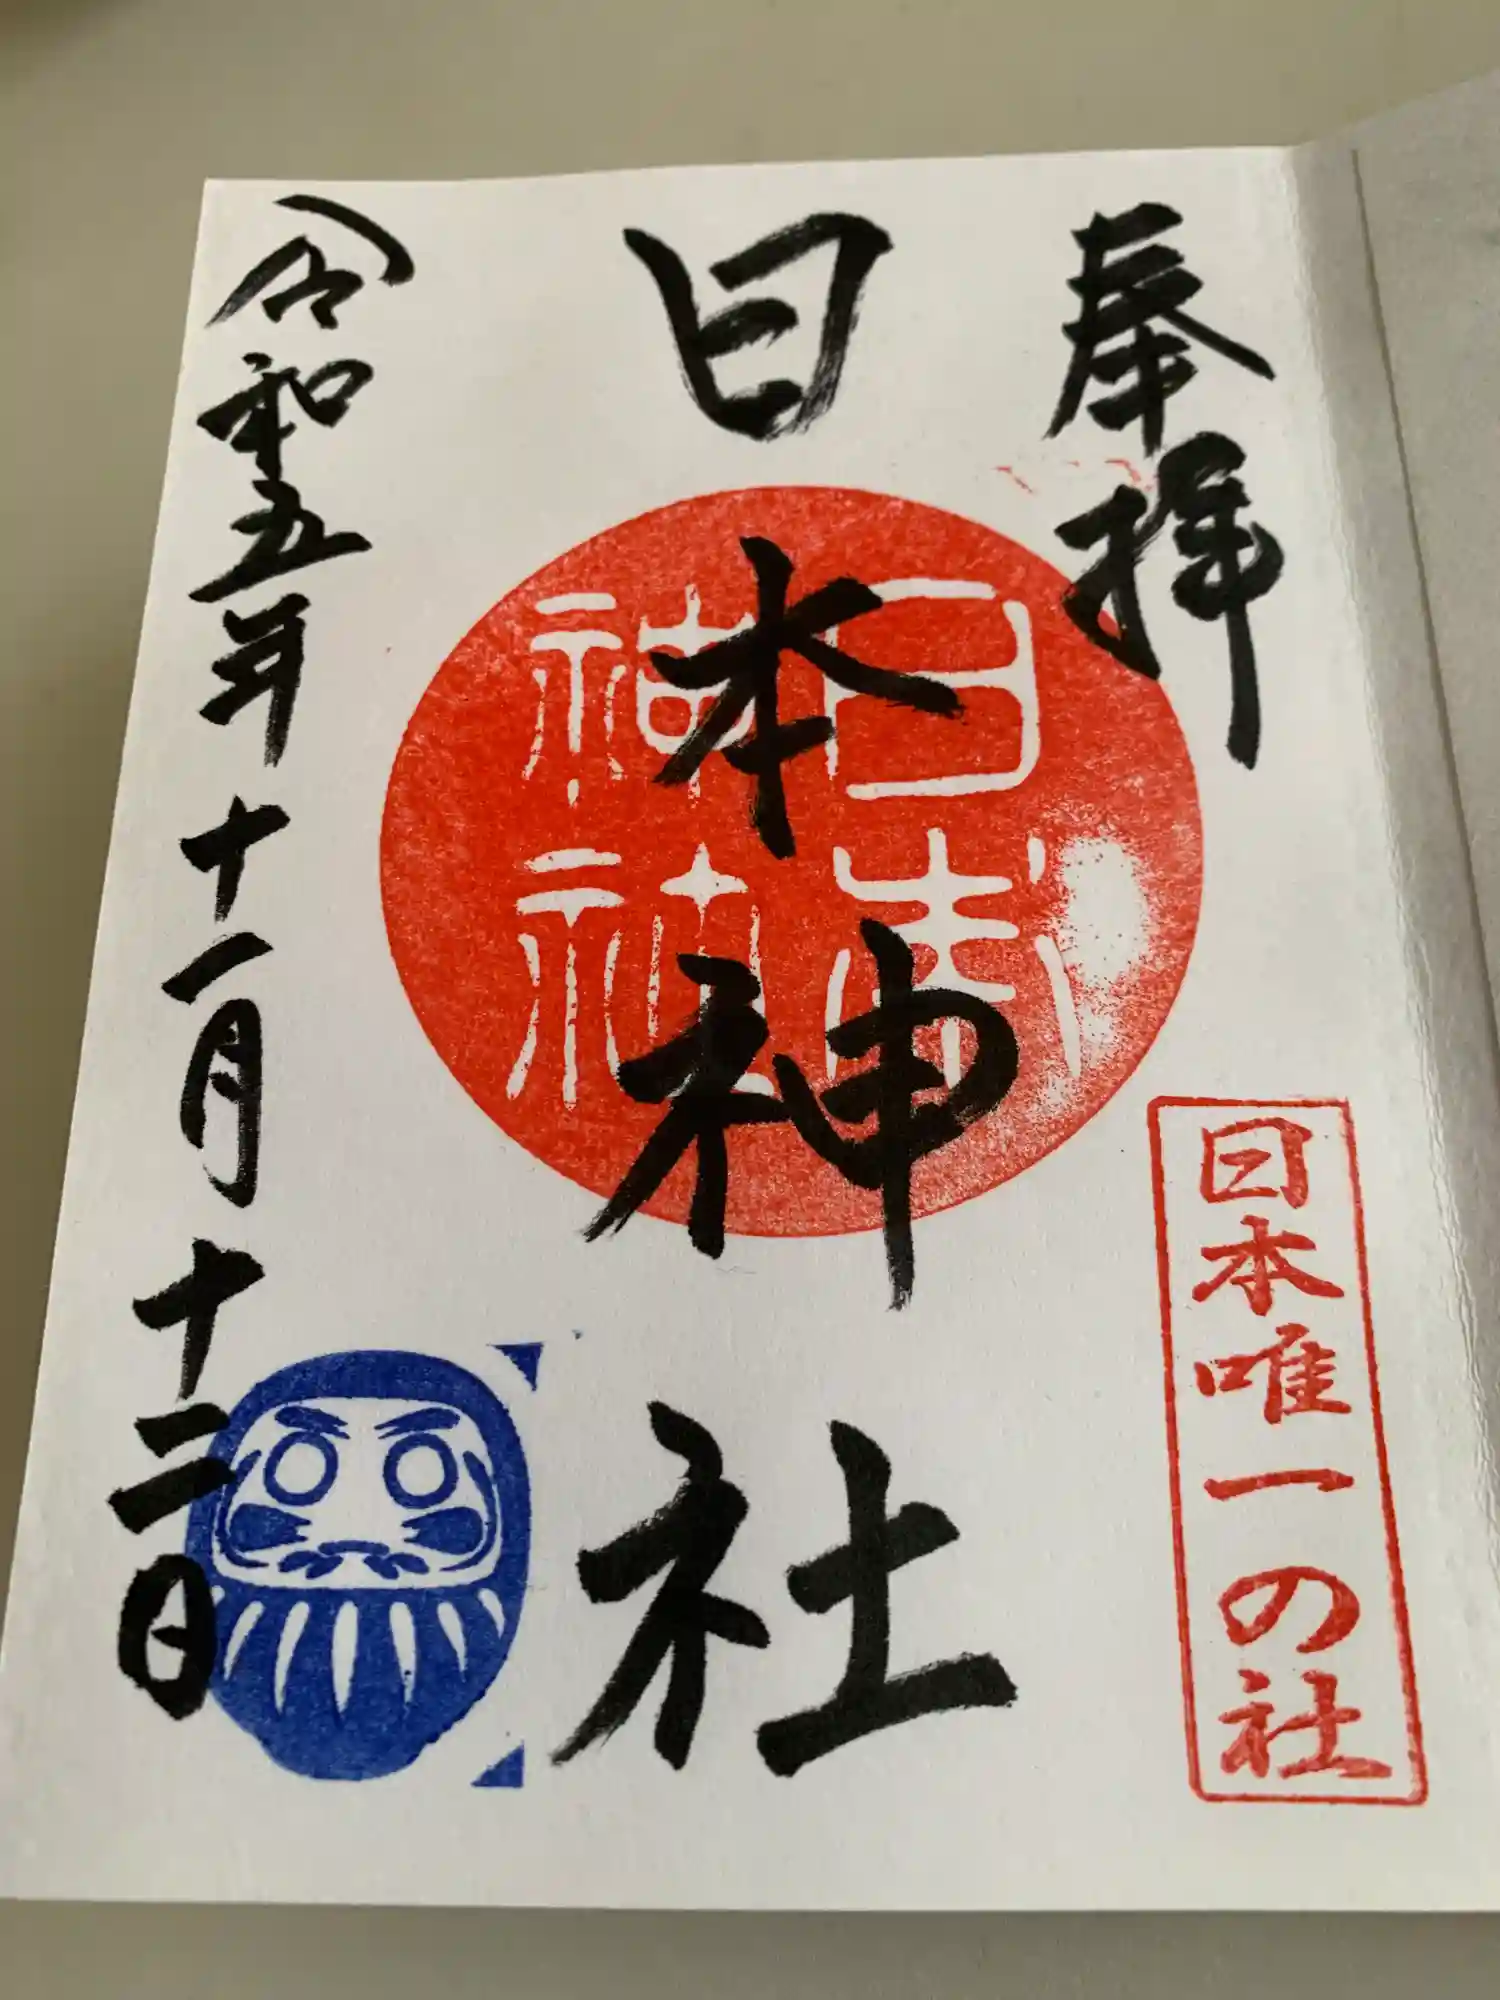 奉拝
日本唯一の社
日本神社
日本神社
令和五年十一月十二日